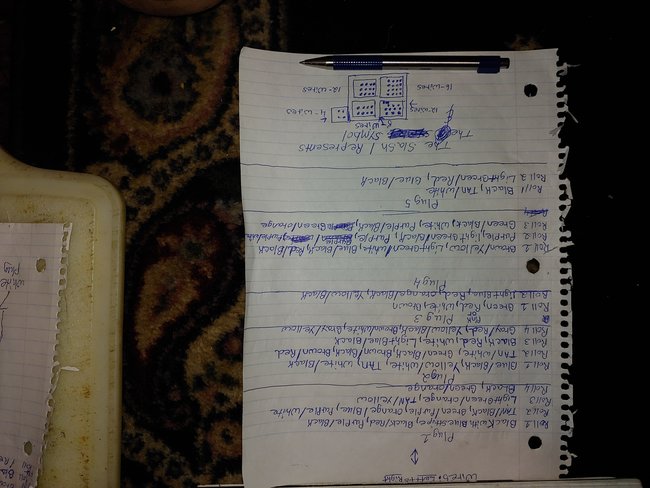 Wires: Left to Right
Plug 1
Roll 1 Black with Blue stripe, Black/Red, Purple/Black
Roll 2 TAN/Black, Green/Purple, Orange, Blue, Purple/White
Roll 3 Light Green/Orange, TAN/Yellow
Roll 4 Black, Green/Orange
Plug 2
Roll 1 Blue/Black, Yellow/White, TAN, White/Black
Roll 2 TAN/White, Green/Black, Brown/Black, Brown/Red
Roll 3 Black, Red, White, Light Blue/Black
Roll 4 Gray/Red, Yellow/Black, Brown/White, Gray/Yellow
Plug 3
Pink
Roll 1 Green, White, Brown
Roll 2 Light Blue, Red, Orange/Black, Yellow/Black
Plug 4
Roll 1 Brown/Yellow, Light Green, White, Blue/Black, Red/Black
Roll 2 Purple, Light Green/Black, Purple
Roll 3 Green/Black, White, Purple/Black, Green/Orange
Plug 5
Roll 1 Black, Tan/White
Roll 2 Light Green/Red, Blue/Black
The Slash / Represents
The Symbol
12-wires
5-wires
4-wires
16-wires
12-wires
White
Plug